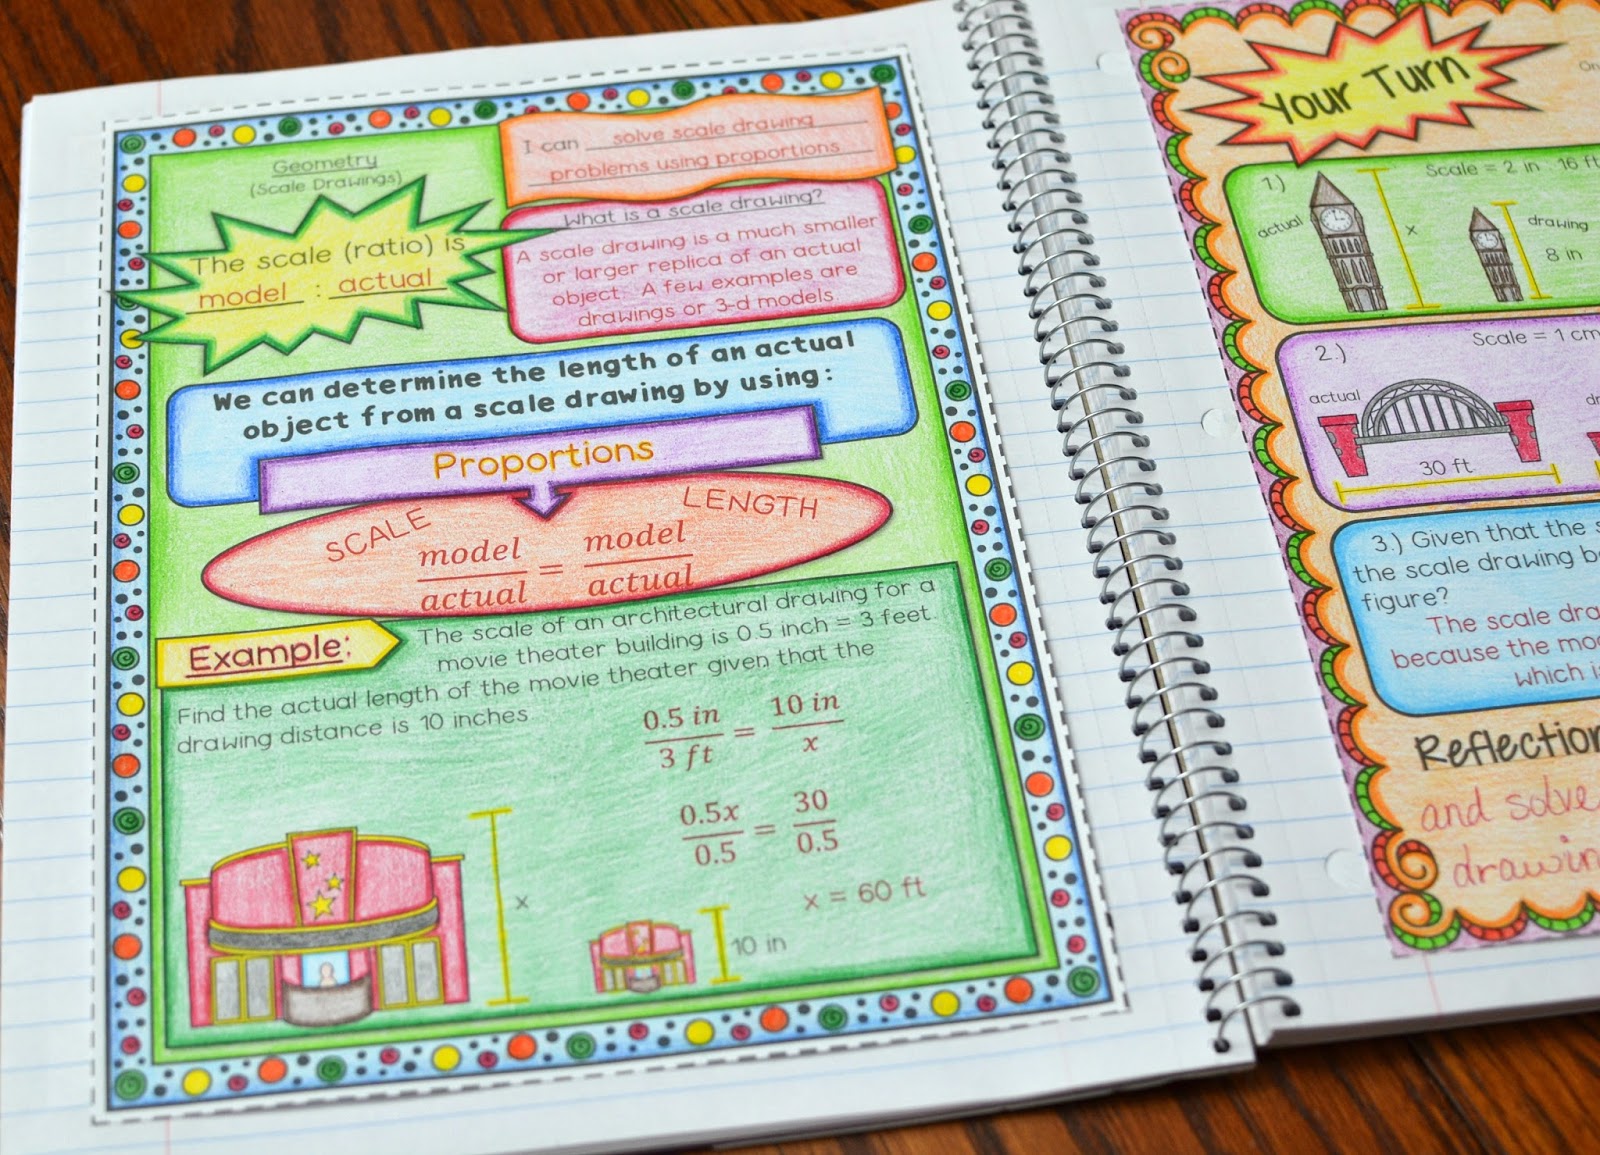 Geometry
(Scale Drawings)
I can solve scale drawing
problems using proportions
The scale (ratio) is
model : actual
What is a scale drawing?
A scale drawing is a much smaller
or larger replica of an actual
object. A few examples are
drawings or 3-d models.
We can determine the length of an actual
object from a scale drawing by using:
Proportions
SCALE LENGTH
model = model
actual actual
Example:
The scale of an architectural drawing for a
movie theater building is 0.5 inch = 3 feet.
Find the actual length of the movie theater given that the
drawing distance is 10 inches
0.5 in = 10 in
3 ft x
0.5x = 30
0.5 0.5
x = 60 ft
x
10 in
Your Turn
1.)
Scale = 2 in : 16 ft
actual
x
drawing
8 in
2.)
Scale = 1 cm
actual
30 ft
3.) Given that the
the scale drawing
figure?
The scale
because the
which
Reflection
and solve